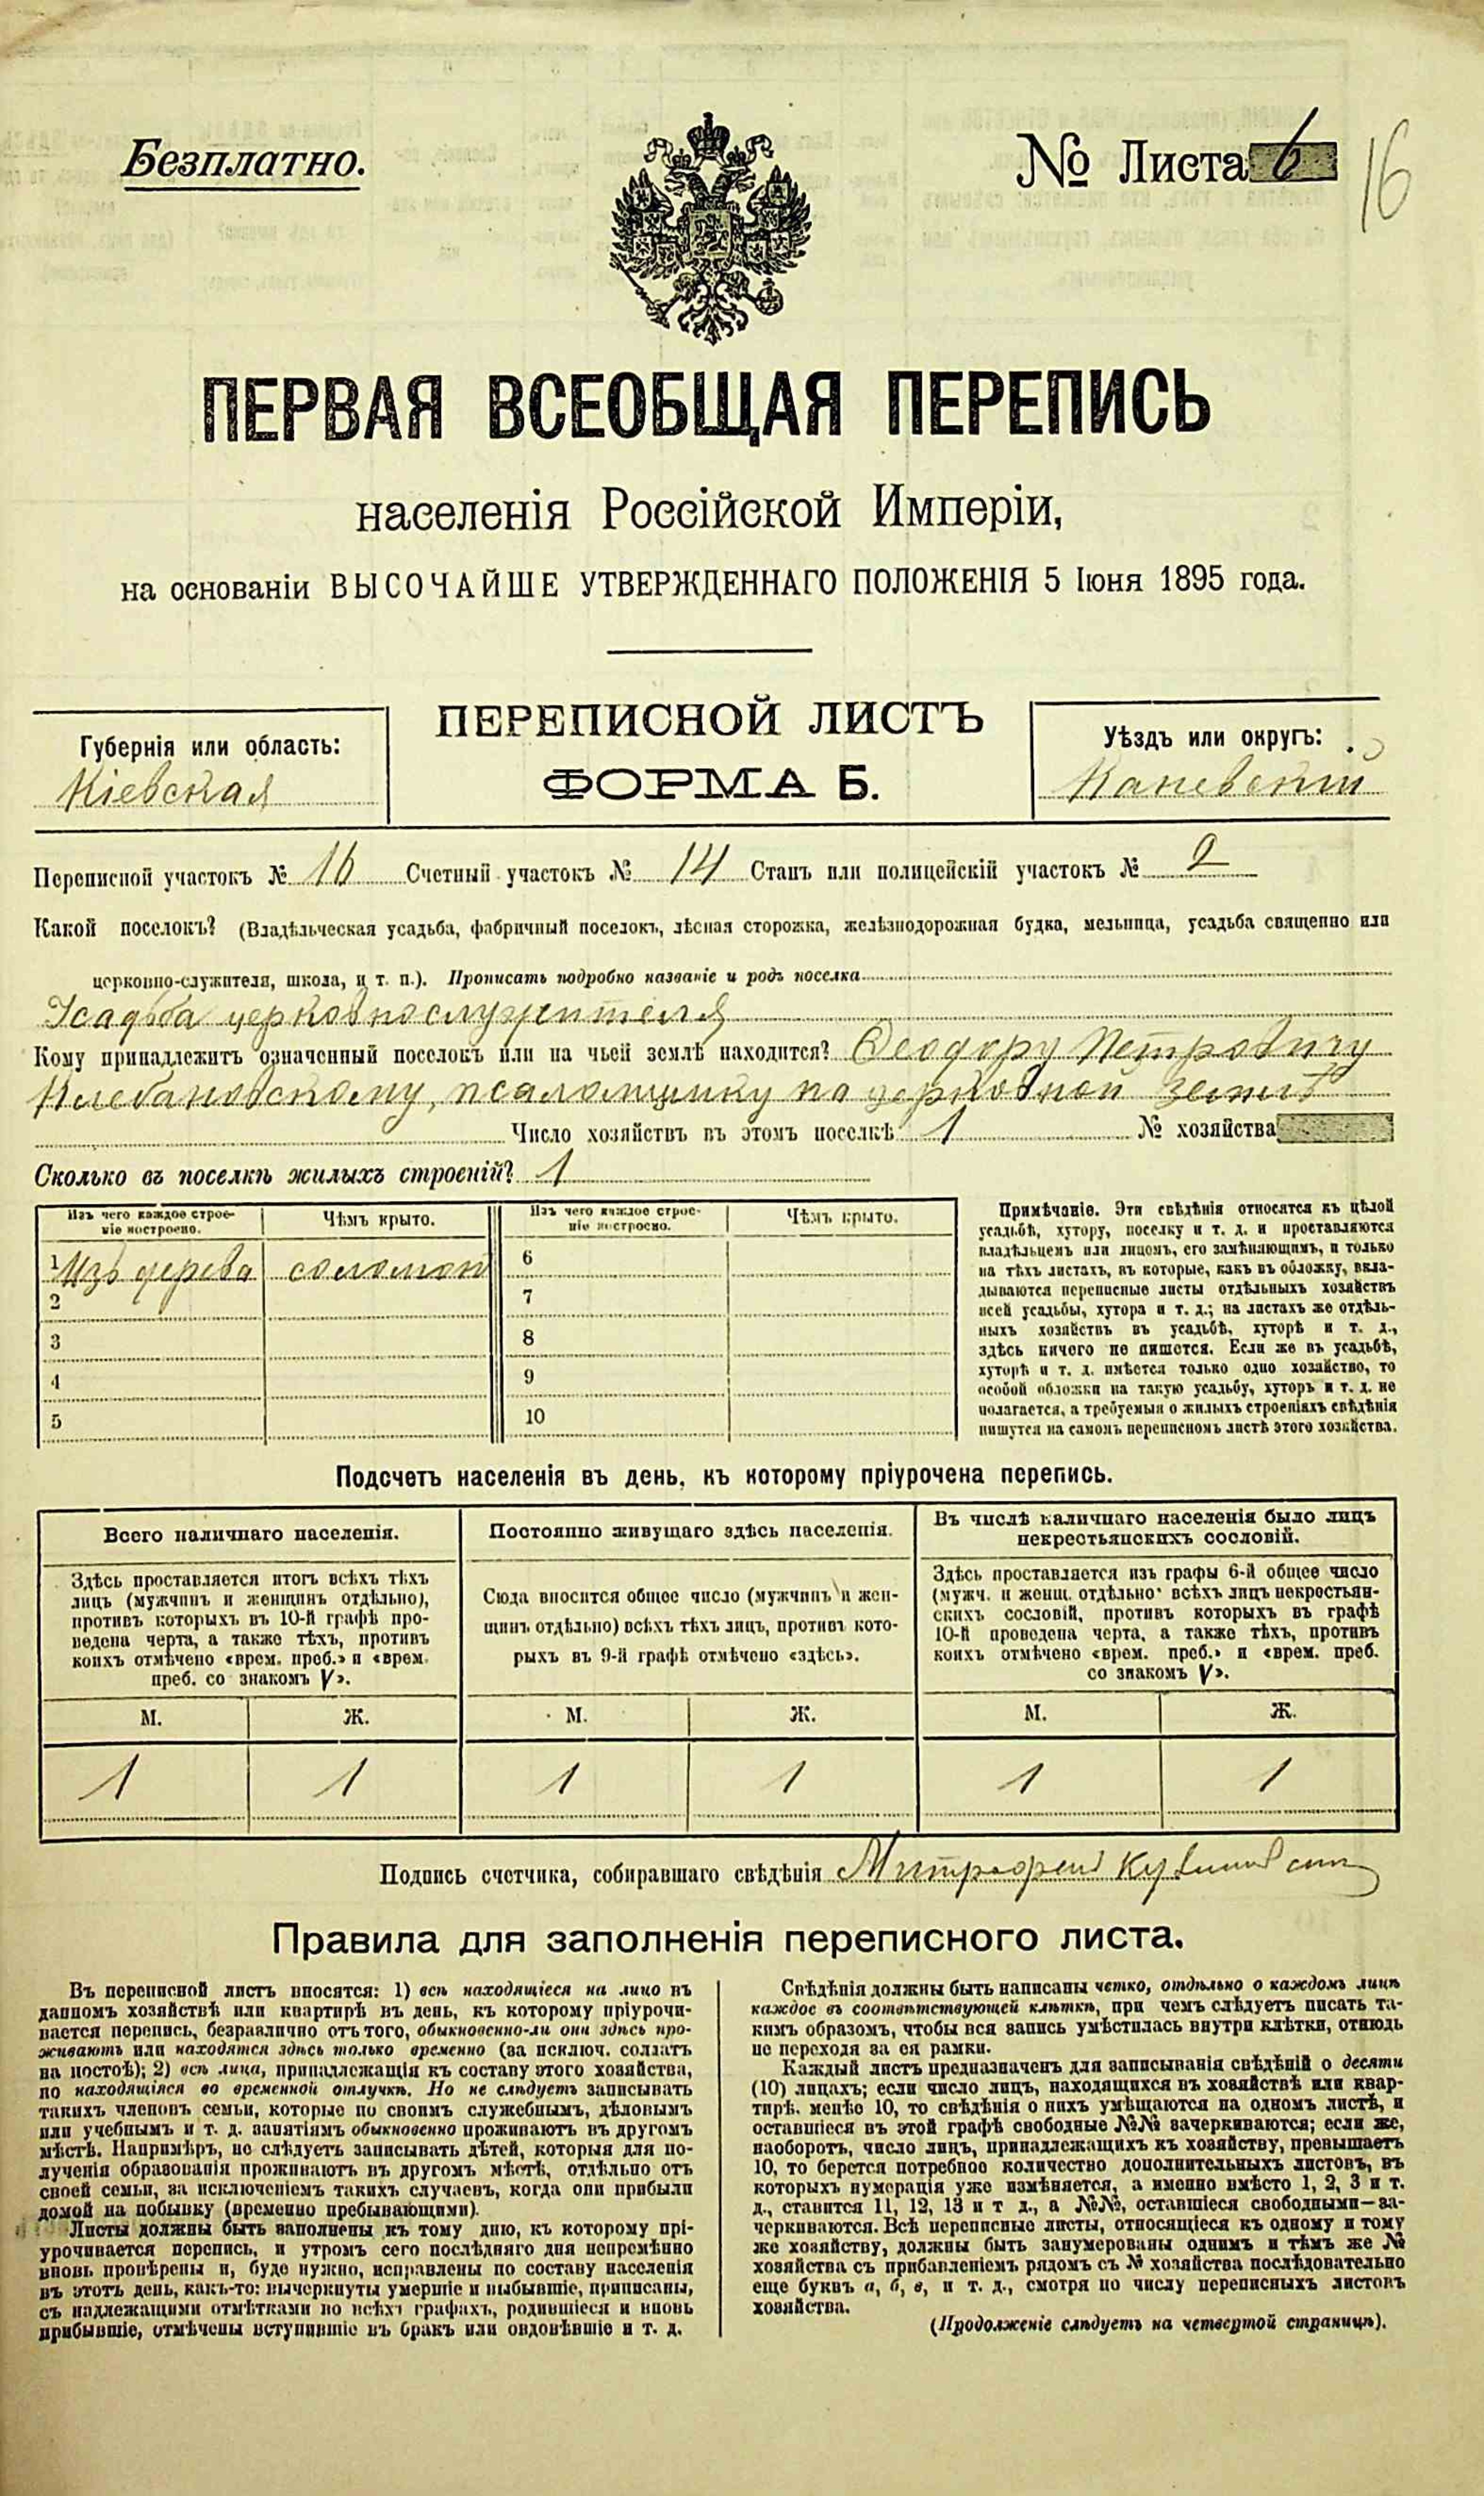 Безплатно.
№ Листа 6
16
ПЕРВАЯ ВСЕОБЩАЯ ПЕРЕПИСЬ
населенія Россійской Имперіи,
на основаніи ВЫСОЧАЙШЕ УТВЕРЖДЕННАГО ПОЛОЖЕНІЯ 5 Іюня 1895 года.
Губернія или область:
Кіевская
ПЕРЕПИСНОЙ ЛИСТЪ
ФОРМА Б.
Уѣздъ или округъ:
Каневскій
Переписной участокъ № 16 Счетный участокъ № 14 Станъ или полицейскій участокъ № 2
Какой поселокъ? (Владѣльческая усадьба, фабричный поселокъ, лѣсная сторожка, желѣзнодорожная будка, мельница, усадьба священно или
церковно-служителя, школа, и т. п.). Прописать подробно названіе и родъ поселка
Усадьба церковнослужителя
Кому принадлежитъ означенный поселокъ или на чьей землѣ находится? Ѳеодору Петровичу
Клебановскому, псаломщику на церковной землѣ
Число хозяйствъ въ этомъ поселкѣ 1 № хозяйства
Сколько въ поселкѣ жилыхъ строеній? 1
Изъ чего каждое строе-
ніе построено.
Чѣмъ крыто.
Изъ чего каждое строе-
ніе построено.
Чѣмъ крыто.
1 Изъ дерева соломой
2
3
4
5
6
7
8
9
10
Примѣчаніе. Эти свѣдѣнія относятся къ цѣлой
усадьбѣ, хутору, поселку и т. д. и проставляются
владѣльцемъ или лицомъ, его замѣняющимъ, и только
на тѣхъ листахъ, въ которые, какъ въ обложку, вкла-
дываются переписные листы отдѣльныхъ хозяйствъ
всей усадьбы, хутора и т. д.; на листахъ же отдѣль-
ныхъ хозяйствъ въ усадьбѣ, хуторѣ и т. д.,
здѣсь ничего не пишется. Если же въ усадьбѣ,
хуторѣ и т. д. имѣется только одно хозяйство, то
особой обложки на такую усадьбу, хуторъ и т. д. не
полагается, а требуемыя о жилыхъ строеніяхъ свѣдѣнія
пишутся на самомъ переписномъ листѣ этого хозяйства.
Подсчетъ населенія въ день, къ которому пріурочена перепись.
Всего наличнаго населенія.
Здѣсь проставляется итогъ всѣхъ тѣхъ
лицъ (мужчинъ и женщинъ отдѣльно),
противъ которыхъ въ 10-й графѣ про-
ведена черта, а также тѣхъ, противъ
коихъ отмѣчено «врем. преб.» и «врем.
преб. со знакомъ V».
М. Ж.
1 1
Постоянно живущаго здѣсь населенія.
Сюда вносится общее число (мужчинъ и жен-
щинъ отдѣльно) всѣхъ тѣхъ лицъ, противъ кото-
рыхъ въ 9-й графѣ отмѣчено «здѣсь».
М. Ж.
1 1
Въ числѣ наличнаго населенія было лицъ
некрестьянскихъ сословій.
Здѣсь проставляется изъ графы 6-й общее число
(мужч. и женщ. отдѣльно) всѣхъ лицъ некрестьян-
скихъ сословій, противъ которыхъ въ графѣ
10-й проведена черта, а также тѣхъ, противъ
коихъ отмѣчено «врем. преб.» и «врем. преб.
со знакомъ V».
М. Ж.
1 1
Подпись счетчика, собиравшаго свѣдѣнія Митрофанъ
Правила для заполненія переписного листа.
Въ переписной листъ вносятся: 1) всѣ находящіеся на лицо въ
данномъ хозяйствѣ или квартирѣ въ день, къ которому пріурочи-
вается перепись, безразлично отъ того, обыкновенно-ли они здѣсь про-
живаютъ или находятся здѣсь только временно (за исключ. солдатъ
на постоѣ); 2) всѣ лица, принадлежащія къ составу этого хозяйства,
но находящіяся во временной отлучкѣ. Но не слѣдуетъ записывать
такихъ членовъ семьи, которые по своимъ служебнымъ, дѣловымъ
или учебнымъ и т. д. занятіямъ обыкновенно проживаютъ въ другомъ
мѣстѣ. Напримѣръ, не слѣдуетъ записывать дѣтей, которыя для по-
лученія образованія проживаютъ въ другомъ мѣстѣ, отдѣльно отъ
своей семьи, за исключеніемъ такихъ случаевъ, когда они прибыли
домой на побывку (временно пребывающими).
Листы должны быть заполнены къ тому дню, къ которому прі-
урочивается перепись, и утромъ сего послѣдняго дня непремѣнно
вновь провѣрены и, буде нужно, исправлены по составу населенія
въ этотъ день, какъ-то: вычеркнуты умершіе и выбывшіе, приписаны,
съ надлежащими отмѣтками во всѣхъ графахъ, родившіеся и вновь
прибывшіе, отмѣчены вступившіе въ бракъ или овдовѣвшіе и т. д.
Свѣдѣнія должны быть написаны четко, отдѣльно о каждомъ лицѣ
каждое въ соотвѣтствующей клѣткѣ, при чемъ слѣдуетъ писать та-
кимъ образомъ, чтобы вся запись умѣстилась внутри клѣтки, отнюдь
не переходя за ея рамки.
Каждый листъ предназначенъ для записыванія свѣдѣній о десяти
(10) лицахъ; если число лицъ, находящихся въ хозяйствѣ или квар-
тирѣ, менѣе 10, то свѣдѣнія о нихъ умѣщаются на одномъ листѣ, и
оставшіеся въ этой графѣ свободные №№ зачеркиваются; если же,
наоборотъ, число лицъ, принадлежащихъ къ хозяйству, превышаетъ
10, то берется потребное количество дополнительныхъ листовъ, въ
которыхъ нумерація уже измѣняется, а именно вмѣсто 1, 2, 3 и т.
д., ставится 11, 12, 13 и т д., а №№, оставшіеся свободными—за-
черкиваются. Всѣ переписные листы, относящіеся къ одному и тому
же хозяйству, должны быть занумерованы однимъ и тѣмъ же №
хозяйства съ прибавленіемъ рядомъ съ № хозяйства послѣдовательно
еще буквъ а, б, в, и т. д., смотря по числу переписныхъ листовъ
хозяйства.
(Продолженіе слѣдуетъ на четвертой страницѣ).